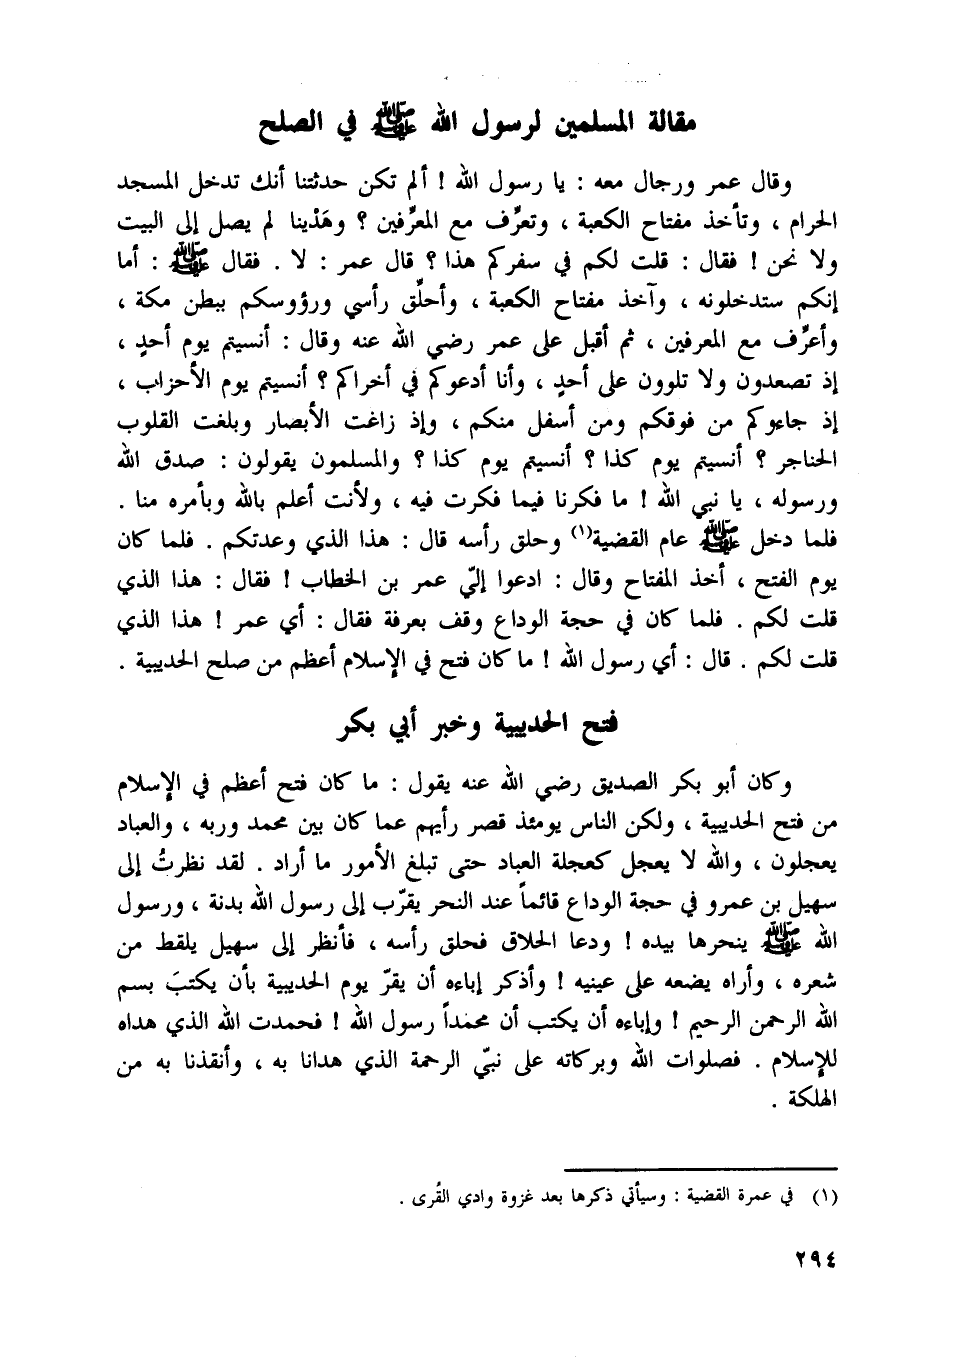 مقالة المسلمين لرسول الله ﷺ في الصلح
وقال عمر ورجال معه : يا رسول الله ! ألم تكن حدثتنا أنك تدخل المسجد
الحرام ، وتأخذ مفتاح الكعبة ، وتعرِّف مع المعرِّفين ؟ وهَدْينا لم يصل إلى البيت
ولا نحن ! فقال : قلت لكم في سفركم هذا ؟ قال عمر : لا . فقال ﷺ : أما
إنكم ستدخلونه ، وآخذ مفتاح الكعبة ، وأحلِّق رأسي ورؤوسكم ببطن مكة ،
وأعرِّف مع المعرفين ، ثم أقبل على عمر رضي الله عنه وقال : أنسيتم يوم أحدٍ ،
إذ تصعدون ولا تلوون على أحدٍ ، وأنا أدعوكم في أخراكم ؟ أنسيتم يوم الأحزاب ،
إذ جاءوكم من فوقكم ومن أسفل منكم ، وإذ زاغت الأبصار وبلغت القلوب
الحناجر ؟ أنسيتم يوم كذا ؟ أنسيتم يوم كذا ؟ والمسلمون يقولون : صدق الله
ورسوله ، يا نبي الله ! ما فكرنا فيما فكرت فيه ، ولأنت أعلم بالله وبأمره منا .
فلما دخل ﷺ عام القضية(١) وحلق رأسه قال : هذا الذي وعدتكم . فلما كان
يوم الفتح ، أخذ المفتاح وقال : ادعوا إليّ عمر بن الخطاب ! فقال : هذا الذي
قلت لكم . فلما كان في حجة الوداع وقف بعرفة فقال : أي عمر ! هذا الذي
قلت لكم . قال : أي رسول الله ! ما كان فتح في الإسلام أعظم من صلح الحديبية .
فتح الحديبية وخبر أبي بكر
وكان أبو بكر الصديق رضي الله عنه يقول : ما كان فتح أعظم في الإسلام
من فتح الحديبية ، ولكن الناس يومئذ قصر رأيهم عما كان بين محمد وربه ، والعباد
يعجلون ، والله لا يعجل كعجلة العباد حتى تبلغ الأمور ما أراد . لقد نظرتُ إلى
سهيل بن عمرو في حجة الوداع قائماً عند النحر يقرّب إلى رسول الله بدنة ، ورسول
الله ﷺ ينحرها بيده ! ودعا الحلاق فحلق رأسه ، فأنظر إلى سهيل يلقط من
شعره ، وأراه يضعه على عينيه ! وأذكر إباءه أن يقرّ يوم الحديبية بأن يكتبَ بسم
الله الرحمن الرحيم ! وإباءه أن يكتب أن محمداً رسول الله ! فحمدت الله الذي هداه
للإسلام . فصلوات الله وبركاته على نبيّ الرحمة الذي هدانا به ، وأنقذنا به من
الهلكة .
(١) في عمرة القضية : وسيأتي ذكرها بعد غزوة وادي القُرى .
٢٩٤